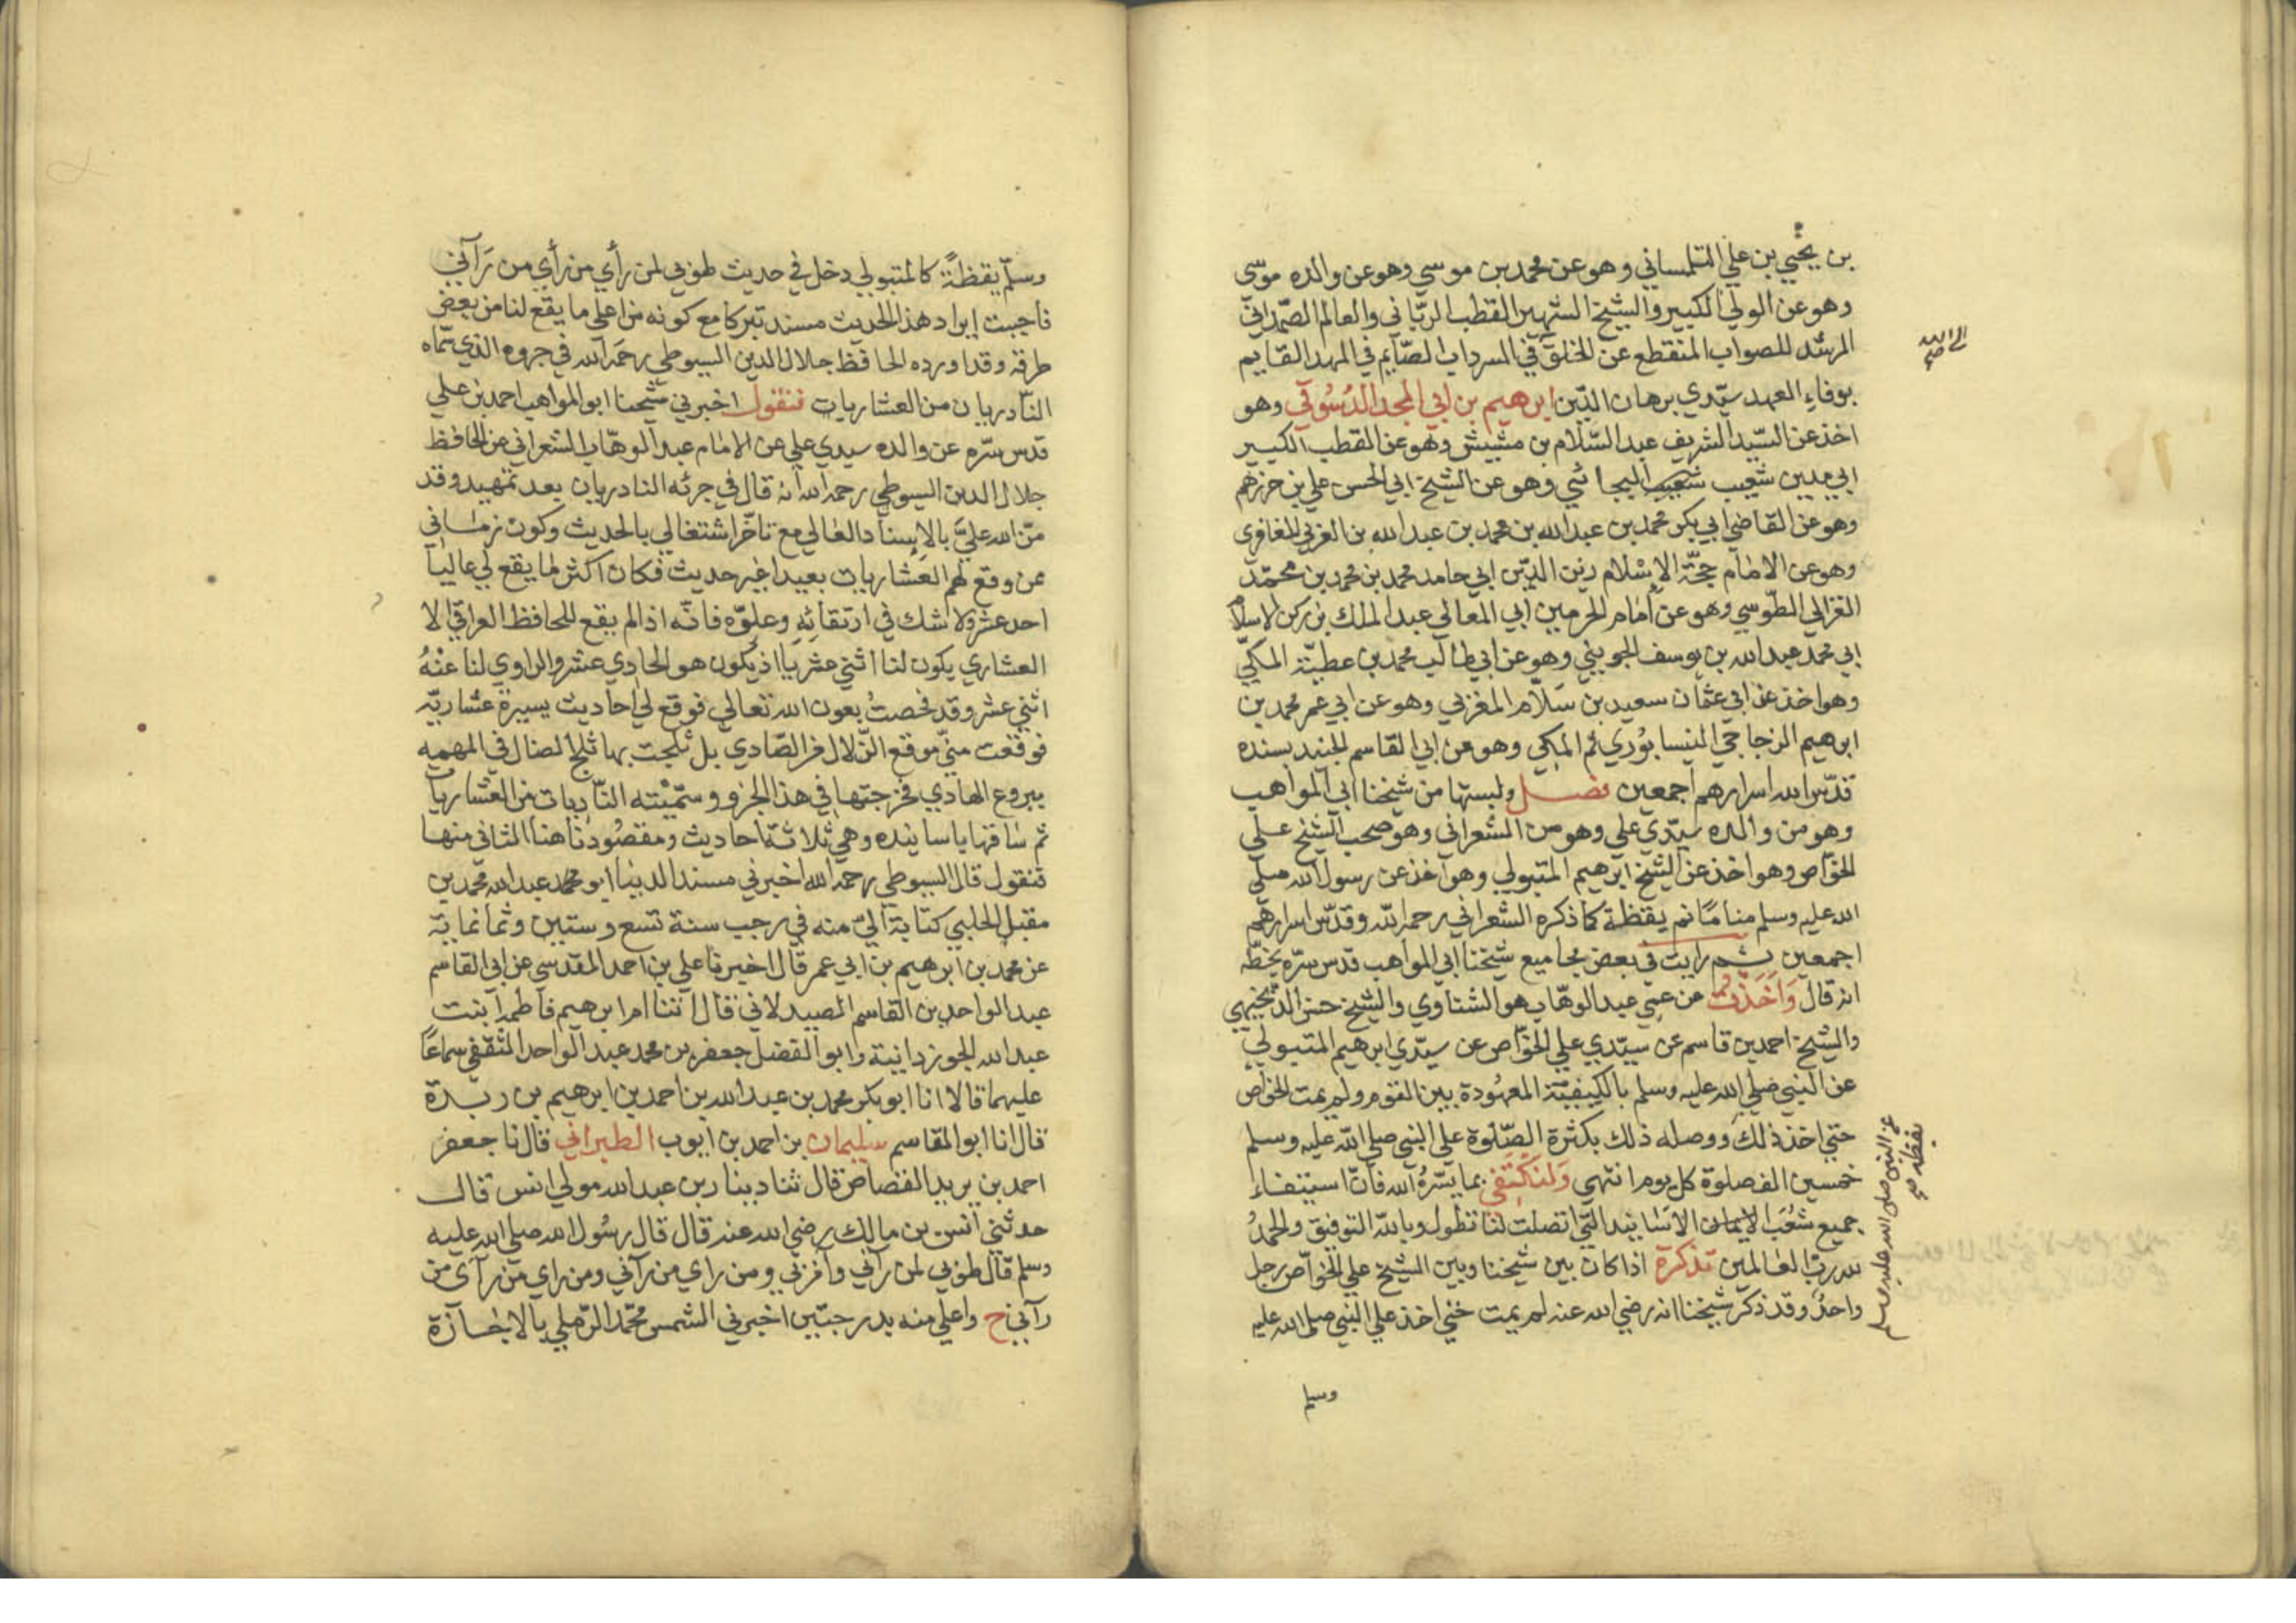 بن يحيي بن علي التلمساني وهو عن محمد بن موسي وهو عن والده موسى
وهو عن الولي الكبير والشيخ الشهير القطب الرباني والعالم الصمداني
المرشد للصواب المنقطع عن الخلق في السرداب الصايم في المهد القايم
الى الله صح
بوفاء العهد سيدي برهان الدين ابرهيم بن ابي المجد الدسوقي وهو
اخذ عن السيد الشريف عبد السلام بن مشيش وهو عن القطب الكبير
ابي مدين شعيب شعيب البجائي وهو عن الشيخ ابي الحسن علي بن حرزهم
وهو عن القاضي ابي بكر محمد بن عبد الله بن محمد بن عبد الله بن العربي المغافري
وهو عن الامام حجة الاسلام زين الدين ابي حامد محمد بن محمد بن محمد
الغزالي الطوسي وهو عن امام الحرمين ابي المعالي عبد الملك بن ركن الاسلام
ابي محمد عبد الله بن يوسف الجويني وهو عن ابي طالب محمد بن عطية المكي
وهو اخذ عن ابي عثمان سعيد بن سلام المغربي وهو عن ابي عمر محمد بن
ابرهيم الزجاجي النيسابوري ثم المكي وهو عن ابي القاسم الجنيد بسنده
قدس الله اسرارهم اجمعين فصل ولبستها من شيخنا ابي المواهب
وهو من والده سيدي علي وهو من الشعراني وهو صحب الشيخ علي
الخواص وهو اخذ عن الشيخ ابرهيم المتبولي وهو اخذ عن رسول الله صلي
الله عليه وسلم مناما ثم يقظة كما ذكره الشعراني رحمه الله وقدس اسرارهم
اجمعين ثم رايت في بعض مجاميع شيخنا ابي المواهب قدس سره بخطه
انه قال واخذت عن عمي عبد الوهاب هو الشناوي والشيخ حسن الدنجيهي
والشيخ احمد بن قاسم عن سيدي علي الخواص عن سيدي ابرهيم المتبولي
عن النبي صلي الله عليه وسلم بالكيفية المعهودة بين القوم ولم يمت الخواص
حتي اخذ ذلك ووصله ذلك بكثرة الصلوة علي النبي صلي الله عليه وسلم
عن النبي صلى الله عليه وسلم
يقظة صح
خمسين الف صلوة كل يوم انتهي ولنكتفي بما يسره الله فان استيفاء
جميع شعب الايمان الاسانيد التي اتصلت لنا تطول وبالله التوفيق والحمد
لله رب العالمين تذكرة اذا كان بين شيخنا وبين الشيخ علي الخواص رجل
واحد وقد ذكر شيخنا انه رضي الله عنه لم يمت حتي اخذ علي النبي صلى الله عليه
وسلم
وسلم يقظة كالمتبولي دخل في حديث طوبي لمن رأي من رأي من رآني
فاجببت ايراد هذا الحديث مسند تبركا مع كونه من اعلي ما يقع لنا من بعض
طرقه وقد اورده الحافظ جلال الدين السيوطي رحمه الله في جزوه الذي سماه
النادريات من العشاريات فنقول اخبرني شيخنا ابو المواهب احمد بن علي
قدس سره عن والده سيدي علي عن الامام عبد الوهاب الشعراني عن الحافظ
جلال الدين السيوطي رحمه الله انه قال في جزئه النادريات بعد تمهيد وقد
من الله علي بالاسناد العالي مع تاخر اشتغالي بالحديث وكون زماني
عن وقع لهم العشاريات بعيدا غير حديث فكان اكثر ما يقع لي عاليا
احد عشر ولا شك في ارتقائه وعلوه فانه اذا لم يقع للحافظ العراقي الا
العشاري يكون لنا اثني عشريا اذ يكون هو الحادي عشر والراوي لنا عنه
اثني عشر وقد فحصت بعون الله تعالي فوقع لي احاديث يسيرة عشارية
فوقعت مني موقع الزلال من الصادي بل ثلجت بها ثلج الضال في المهمه
ببروع الهادي فخرجتها في هذا الجزو وسميته النادريات من العشاريات
ثم ساقها باسانيده وهي ثلاثة احاديث ومقصودنا هنا الثاني منها
فنقول قال السيوطي رحمه الله اخبرني مسند الدنيا ابو محمد عبد الله محمد بن
مقبل الحلبي كتابة الي منه في رجب سنة تسع وستين وثمانماية
عن محمد بن ابرهيم بن ابي عمر قال اخبرنا علي بن احمد المقدسي عن ابي القاسم
عبد الواحد بن القاسم الصيدلاني قال انتنا ام ابرهيم فاطمة بنت
عبد الله الجوزدانية وابو الفضل جعفر بن محمد عبد الواحد الثقفي سماعا
عليهما قالا انا ابو بكر محمد بن عبد الله بن احمد بن ابرهيم بن ريدة
قال انا ابو القاسم سليمان بن احمد بن ايوب الطبراني قال نا جعفر
احمد بن يريد القصاص قال ثنا دينار بن عبد الله مولي انس قال
حدثني انس بن مالك رضي الله عنه قال قال رسول الله صلي الله عليه
وسلم قال طوبي لمن رآني وآمن بي ومن راي من رآني ومن راي من رآى من
رآني ح واعلي منه بدرجتين اخبرني الشمس محمد الرملي بالاجازة